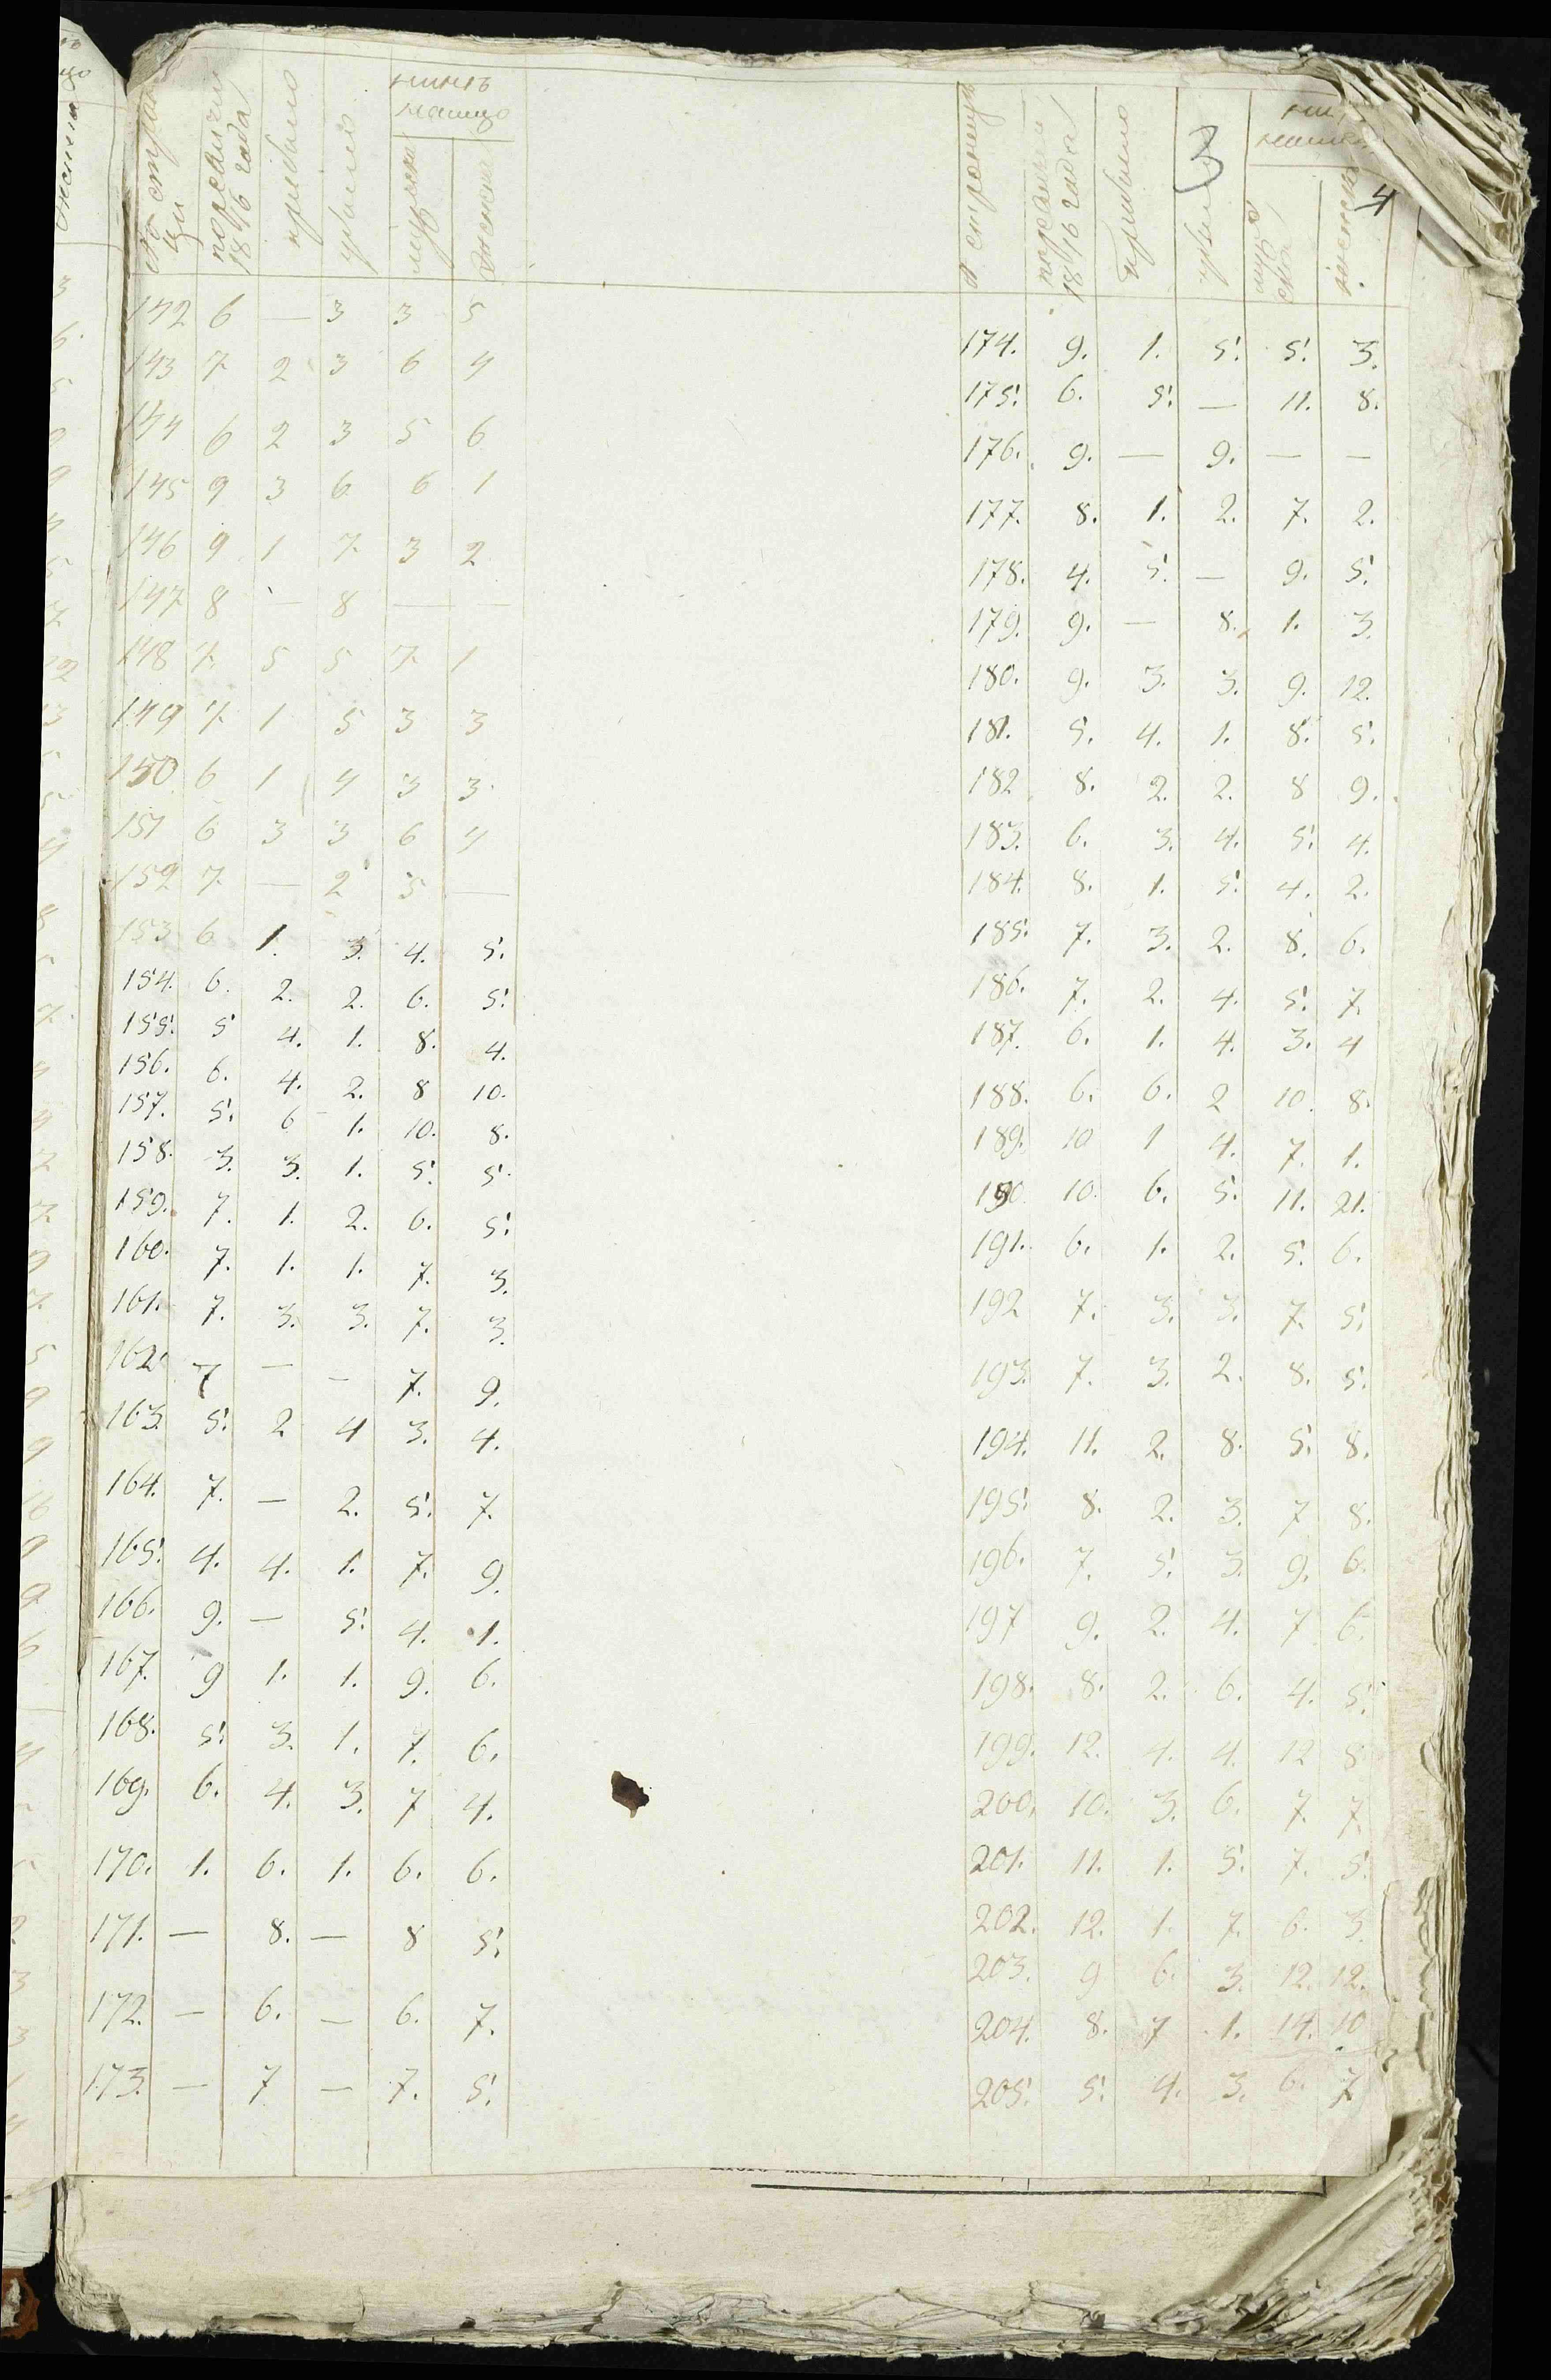 3
4
по ревизии 1816 года
прибыло
убыло
ныне
налицо
мужска
женска
142 6 — 3 3 5
143 7 2 3 6 4
144 6 2 3 5 6
145 9 3 6 6 1
146 9 1 7 3 2
147 8 — 8 — —
148 7 5 5 7 1
149 7 1 5 3 3
150 6 1 4 3 3
151 6 3 3 6 4
152 7 — 2 5 —
153 6 1. 3. 4. 5.
154. 6. 2. 2. 6. 5.
155. 5 4. 1. 8. 4.
156. 6. 4. 2. 8 10.
157. 5. 6 1. 10. 8.
158. 3. 3. 1. 5. 5.
159. 7. 1. 2. 6. 5.
160. 7. 1. 1. 7. 3.
161. 7. 3. 3. 7. 3.
162. 7 — — 7. 9.
163. 5. 2 4 3. 4.
164. 7. — 2. 5. 7.
165. 4. 4. 1. 7. 9.
166. 9. — 5. 4. 1.
167. 9 1. 1. 9. 6.
168. 5. 3. 1. 7. 6.
169. 6. 4. 3. 7 4.
170. 1. 6. 1. 6. 6.
171. — 8. — 8 5.
172. — 6. — 6. 7.
173. — 7 — 7. 5.
№ страницъ
по ревизии 1816 года
прибыло
убыло
мужска
женска
174. 9. 1. 5. 5. 3.
175. 6. 5. — 11. 8.
176. 9. — 9. — —
177. 8. 1. 2. 7. 2.
178. 4. 5. — 9. 5.
179. 9. — 8. 1. 3.
180. 9. 3. 3. 9. 12.
181. 5. 4. 1. 8. 5.
182 8. 2. 2. 8 9.
183. 6. 3. 4. 5. 4.
184. 8. 1. 5. 4. 2.
185. 7. 3. 2. 8. 6.
186. 7. 2. 4. 5. 7.
187. 6. 1. 4. 3. 4
188. 6. 6. 2 10. 8.
189. 10 1 4. 7. 1.
190. 10. 6. 5. 11. 21.
191. 6. 1. 2. 5. 6.
192 7. 3. 3. 7. 5.
193. 7. 3. 2. 8. 5.
194. 11. 2. 8. 5. 8.
195. 8. 2. 3. 7 8.
196. 7. 5. 3. 9. 6.
197 9. 2. 4. 7 6.
198. 8. 2. 6. 4. 5.
199. 12. 4. 4. 12 8
200. 10. 3. 6. 7. 7.
201. 11. 1. 5. 7. 5.
202. 12. 1. 7. 6. 3.
203. 9 6. 3. 12. 12.
204. 8. 7 1. 14. 10
205. 5. 4. 3. 6. 7